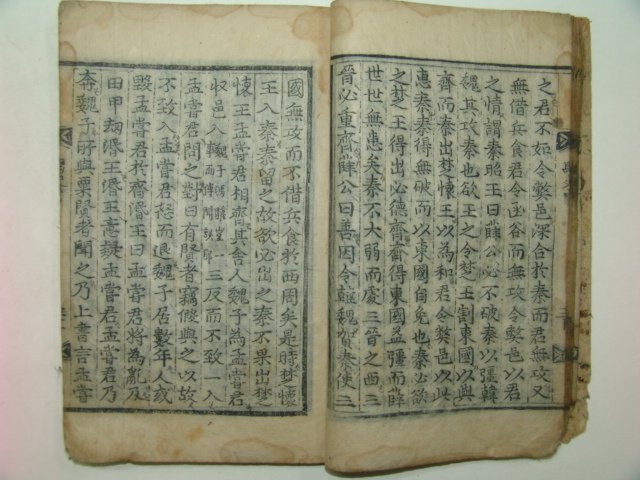 之君不如令弊邑深合於秦而君無攻又
無借兵食君令函谷而無攻令弊邑以君
之情謂秦昭王曰薛公必不破秦以彊韓
魏其攻秦也欲王之令楚王割東國以與
齊而秦出楚懷王以為和君令弊邑以此
惠秦秦得無破而以東國自免也秦必欲
之楚王得出必德齊齊得東國益彊而薛
世世無患矣秦不大弱而處三晉之西三
晉必重齊薛公曰善因令韓魏賀秦使三
國無攻而不借兵食於西周矣是時楚懷
王入秦秦留之故欲必出之秦不果出楚
懷王孟嘗君相齊其舍人魏子為孟嘗君
收邑入三反而不致一入
孟嘗君問之對曰有賢者竊假與之以故
不致入孟嘗君怒而退魏子居數年人或
毀孟嘗君於齊湣王曰孟嘗君將為亂及
田甲劫湣王湣王意疑孟嘗君孟嘗君乃
奔魏子所與粟賢者聞之乃上書言孟嘗